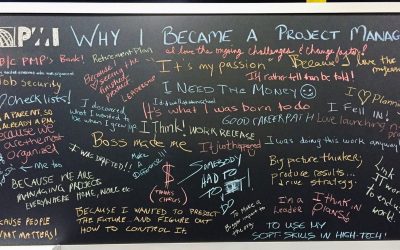 PMI WHY I BECAME A PROJECT MANAG
B/c PMP's Bank!
Retirement Plan
I love the ongoing challenges & change factor!
It's my passion
Because I love the
Job Security
Because I
seeing the
finished
product
LEADERSHIP
I'd rather tell than be told!
I NEED THE MONEY
Checklists!
I discovered
what I wanted to
be when I grew up
It's what I was born to do
I ♡ Planning
GOOD CAREER PATH
I FELL IN!
Love launching
I THINK!
WORK RELEASE
because we
are the most
organized
Boss made me
It just happened
I was doing this work anyway
Me too
I WAS DRAFTED!
MAKE A
Difference!!!
SOMEBODY
HAD TO
TO DO IT
THANKS CHRIS
Big picture thinker,
produce results...
drive strategy.
BECAUSE WE ARE
MANAGING PROJECTS
EVERYWHERE HOME, WORK etc
BECAUSE I WANTED TO PREDICT
THE FUTURE AND FIGURE OUT
HOW TO CONTROL IT.
To make a
Bigger impact to
my org.
I'm a
Leader
I THINK in
Plans!
BECAUSE PEOPLE
MATTERS!
TO USE MY
SOFT-SKILLS IN HIGH-TECH!